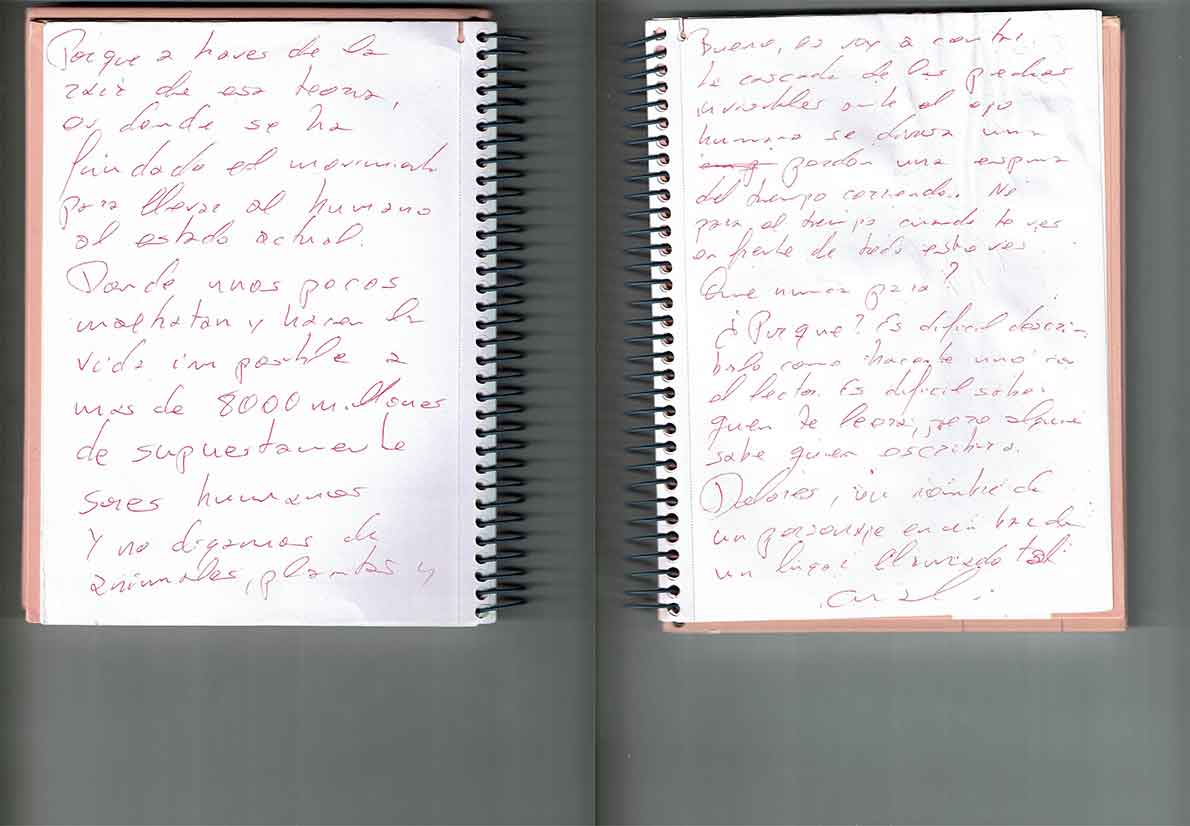 Porque a traves de la
raiz de esa teoria,
es donde se ha
fundado el movimiento
para llevar al humano
al estado actual.
Donde unos pocos
maltratan y hacen la
vida imposible a
mas de 8000 millones
de supuestamente
seres humanos
Y no digamos de
animales, plantas y
Bueno, os voy a contar
la cascada de las piedras
invisibles ante el ojo
humano se divisa una
perdón una espuma
del tiempo corriendo. No
para el tiempo cuando te ves
en frente de todo esto ves
Que nunca para?
¿Porque? Es dificil describir
como hacerte
el lector. Es dificil saber
quien te leera, pero alguien
sabe quien escribira.
Dolores, un nombre de
un personaje
un lugar llamado tal
cual.